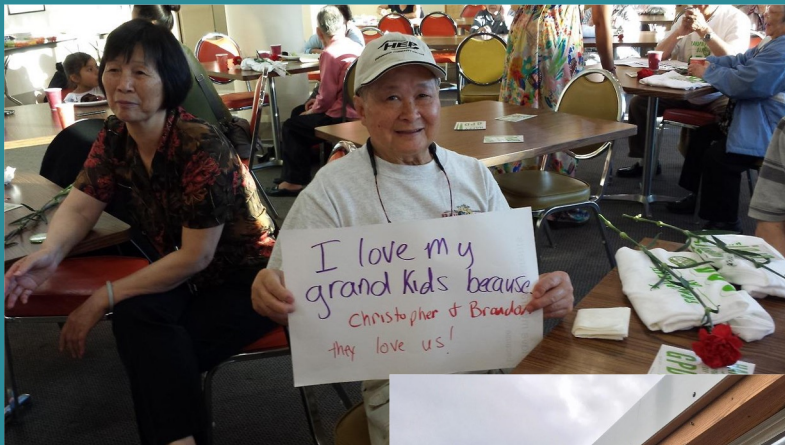 HEP
I love my
grand kids because
Christopher & Brandon
they love us!
GPU